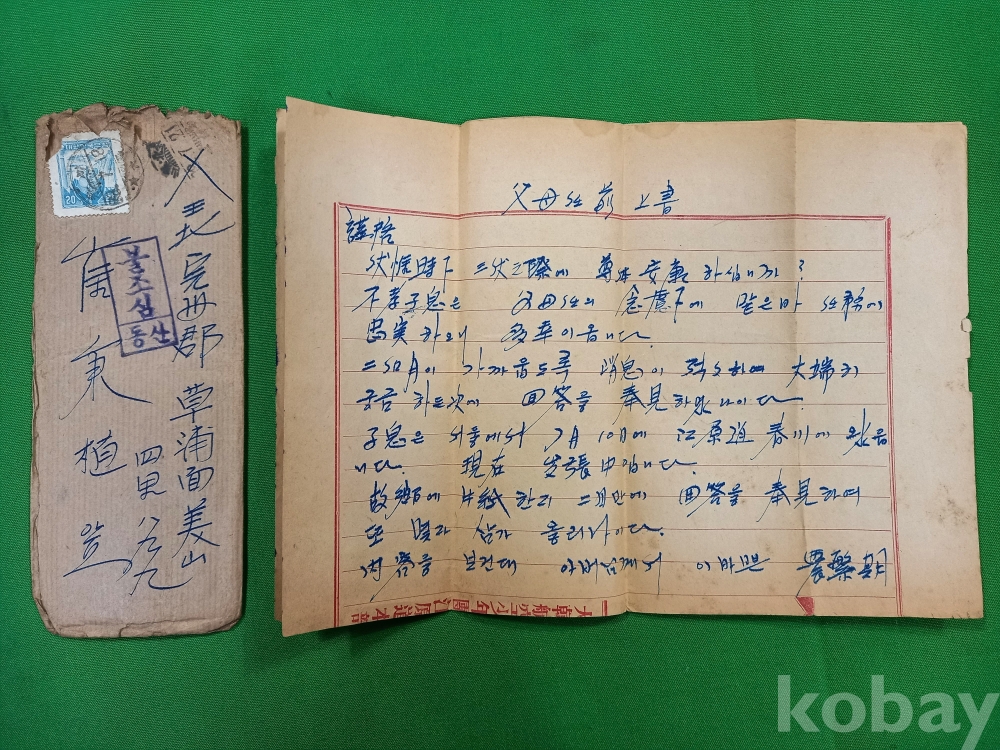 全北 完州郡 草浦面 美山
四里 八九九
秉 植
불조심
동산
20
父母님 前 上書
謹啓
伏惟時下 三伏之際에 尊体 安寧 하십니까?
不孝子息은 父母님의 念慮下에 맡은바 任務에
忠実 하오며 多幸이옵니다.
二個月이 가까웁도록 消息이 적조하여 大端히
궁금 하든次에 回答을 奉見하였나이다.
子息은 서울에서 7月 10日에 江原道 春川에 왔읍
니다. 現在 出張中입니다.
故鄕에 片紙한지 二個月만에 回答을 奉見하여
또 몇자 삼가 올리나이다.
内容을 보건대 아버님께서 이 바쁜 農繁期
大韓航空少年團江原道本部
kobay